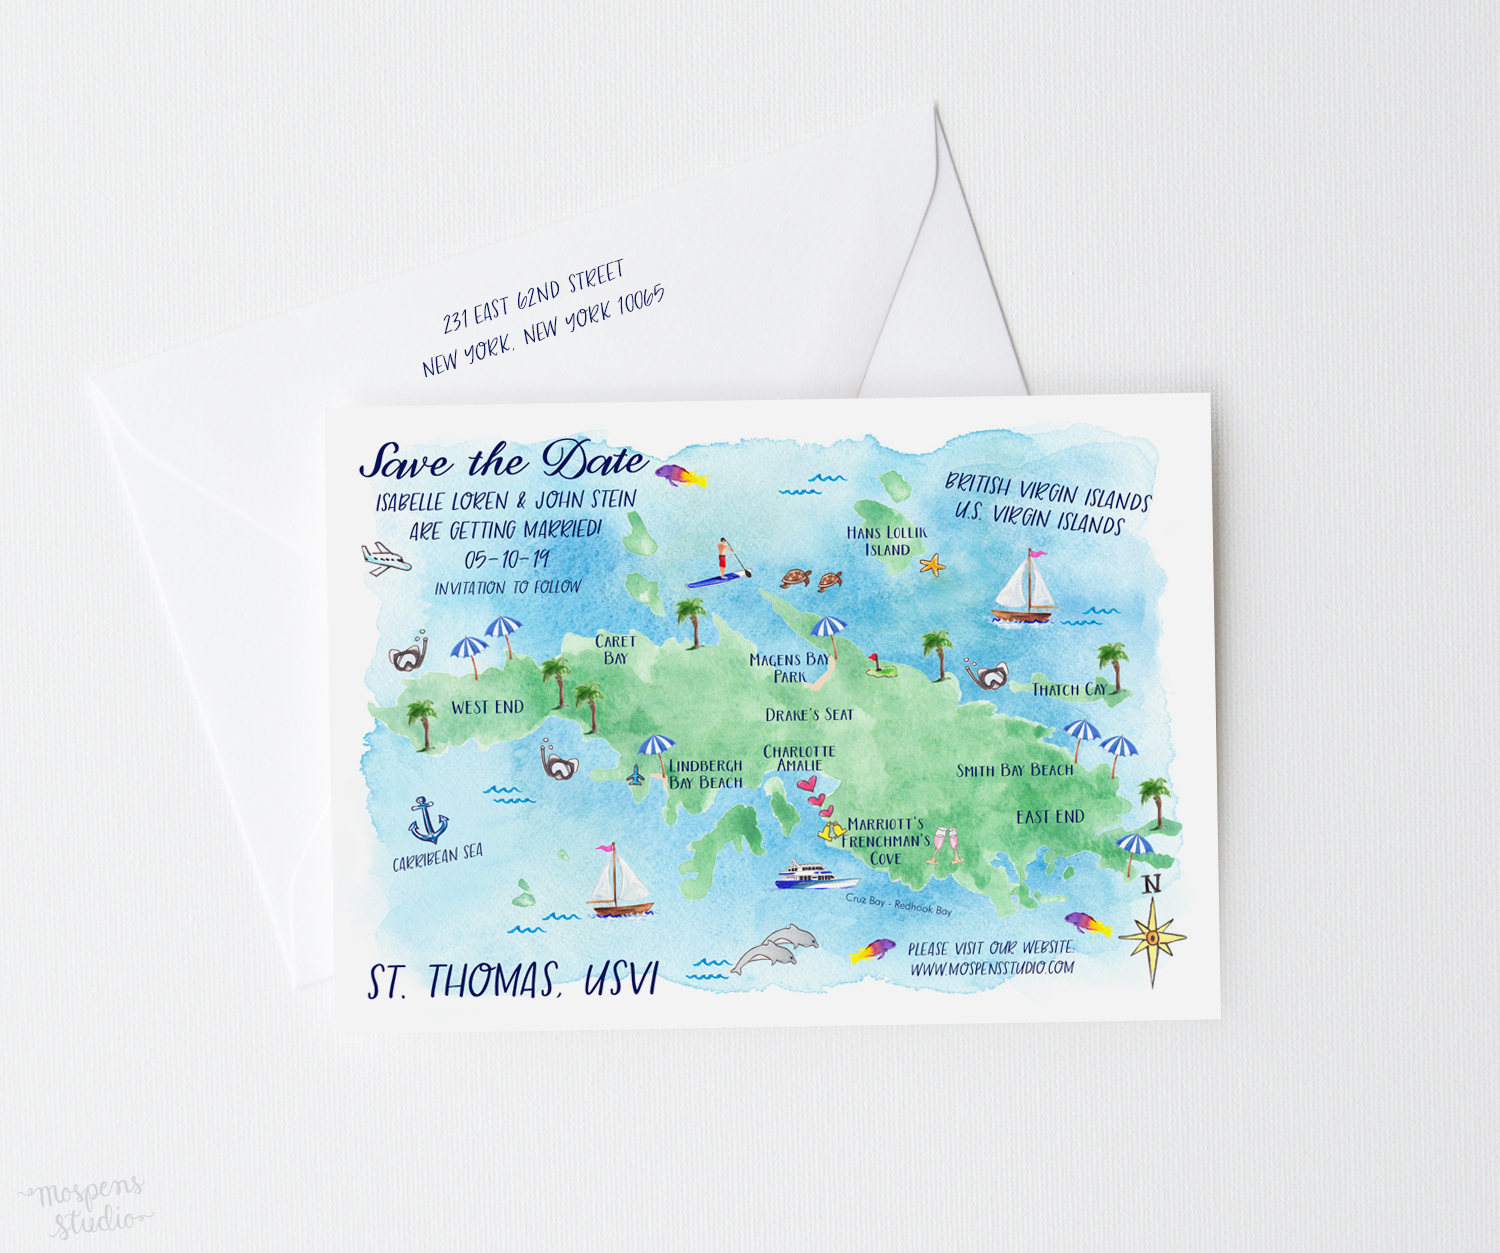 231 EAST 62ND STREET
NEW YORK, NEW YORK 10065
Save the Date
ISABELLE LOREN & JOHN STEIN
ARE GETTING MARRIED!
05-10-19
INVITATION TO FOLLOW
BRITISH VIRGIN ISLANDS
U.S. VIRGIN ISLANDS
HANS LOLLIK
ISLAND
CARET
BAY
MAGENS BAY
PARK
THATCH CAY
WEST END
DRAKE'S SEAT
CHARLOTTE
AMALIE
LINDBERGH
BAY BEACH
SMITH BAY BEACH
EAST END
MARRIOTT'S
FRENCHMAN'S
COVE
CARRIBEAN SEA
Cruz Bay - Redhook Bay
N
PLEASE VISIT OUR WEBSITE:
WWW.MOSPENSSTUDIO.COM
ST. THOMAS, USVI
mospens
studio